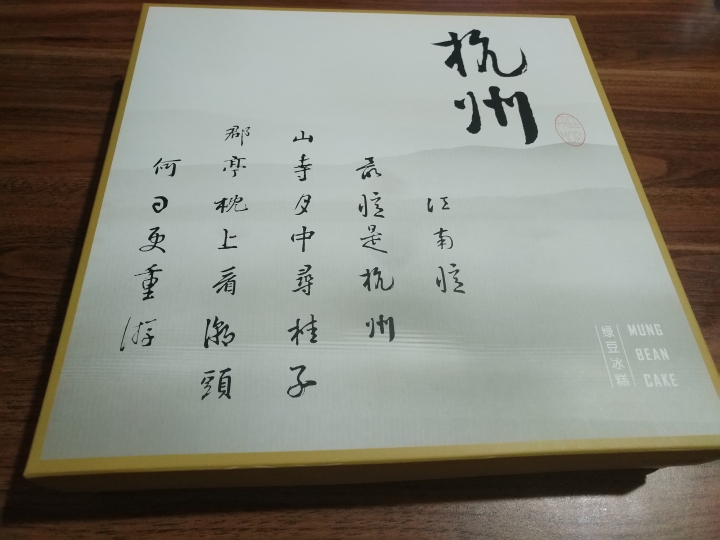 杭州
江南忆
最忆是杭州
山寺月中尋桂子
郡亭枕上看潮頭
何日更重游
绿豆冰糕
MUNG
BEAN
CAKE